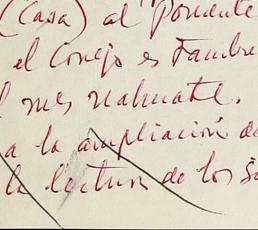 (Casa) al Poniente
el Conejo es también
l mes nahuatl.
a la ampliación de
la lectura de los